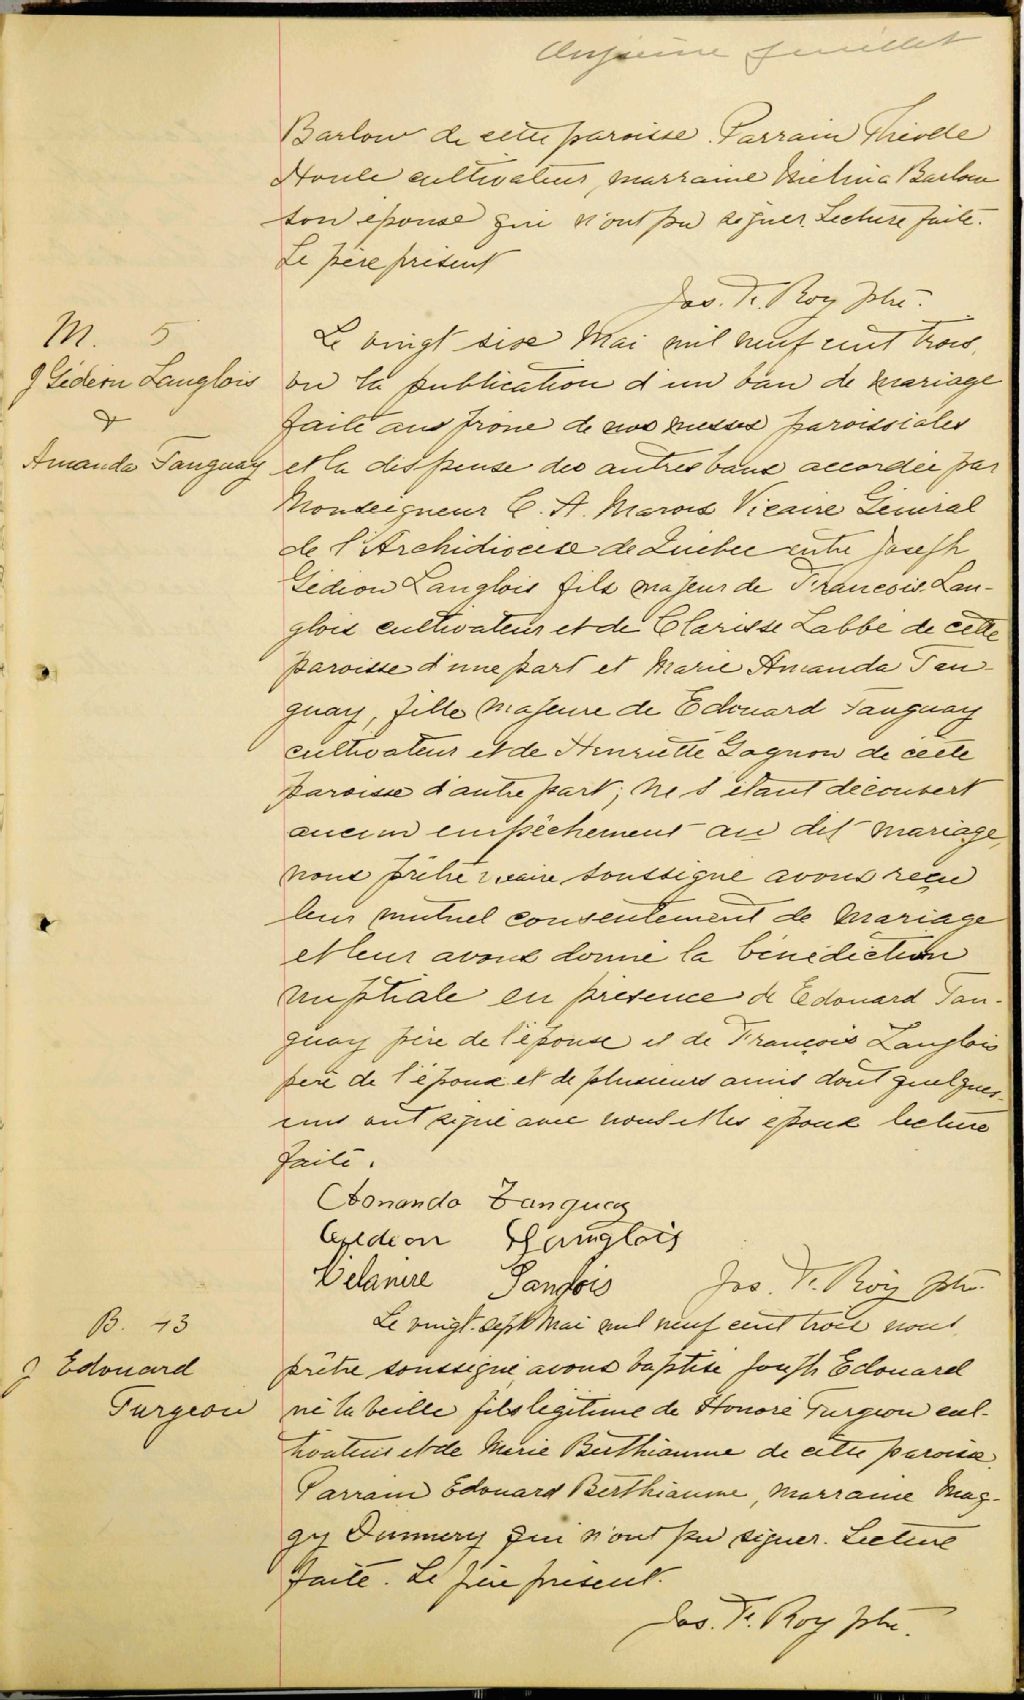 Onzième feuillet
Barlow de cette paroisse. Parrain Théode
Houle cultivateur, marraine Melina Barlow
son épouse qui n'ont pu signer. Lecture faite.
Le père présent
Jos. F. Roy ptre.
M. 5
J Gédéon Langlois
&
Amanda Tanguay
Le vingt six Mai mil neuf cent trois,
vu la publication d'un ban de mariage
faite aux prône de nos messes paroissiales
et la dispense des autres bans accordée par
Monseigneur C. A. Marois Vicaire Général
de l'Archidiocèse de Québec entre Joseph
Gédéon Langlois fils majeur de François Lan-
glois cultivateur et de Clarisse Labbé de cette
paroisse d'une part et Marie Amanda Tan-
guay, fille majeure de Edouard Tanguay
cultivateur et de Henriette Gagnon de cette
paroisse d'autre part; ne s'étant découvert
aucun empêchement au dit mariage,
nous prêtre vicaire soussigné avons reçu
leur mutuel consentement de mariage
et leur avons donné la bénédiction
nuptiale en présence de Edouard Tan-
guay père de l'épouse et de François Langlois
père de l'époux et de plusieurs amis dont quelques-
uns ont signé avec nous et les époux lecture
faite.
Amanda Tanguay
Gedeon Langlois
Langlois Jos. F. Roy ptr.
B. 13
J Edouard
Turgeon
Le vingt-sept Mai mil neuf cent trois nous
prêtre soussigné, avons baptisé Joseph Edouard
né la veille fils légitime de Honoré Turgeon cul-
tivateur et de Marie Berthiaume de cette paroisse.
Parrain Edouard Berthiaume, marraine Mag-
gy Dunnery qui n'ont pu signer. Lecture
faite. Le père présent.
Jos. F. Roy ptr.